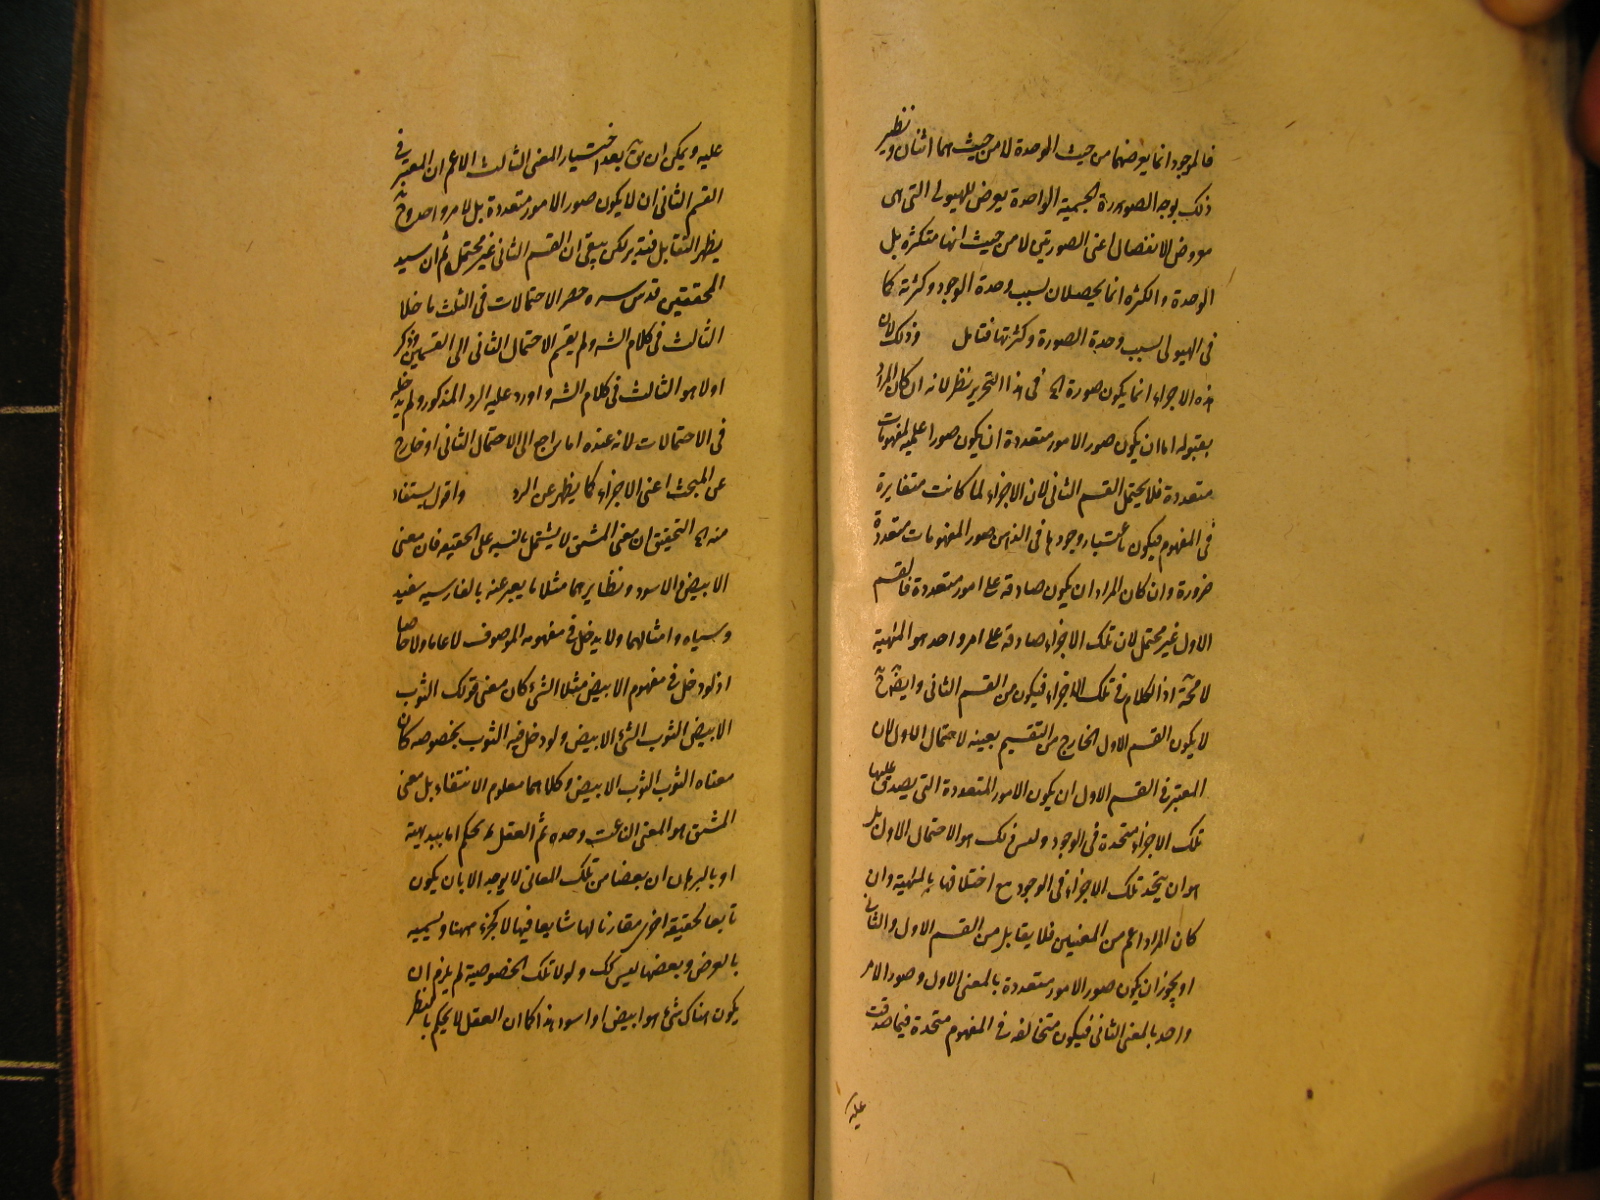 فالموجود انما يعرضهما من حيث الوحدة لا من حيث هما اثنان ونظير
ذلك بوجه الصورة الجسمية الواحدة يعرض للهيولى التى هى
معروض الانفصال اعنى الصورتين لا من حيث انها متكثرة بل
الوحدة والكثرة انما يحصلان بسبب وحدة الوجود وكثرته كما
فى الهيولى بسبب وحدة الصورة وكثرتها فتامل وذلك لان
هذه الاجزاء انما يكون صورة الخ فى هذا التحرير نظر لانه ان كان المراد
بقوله اما ان يكون صور الامور متعددة ان يكون صورا علمية لمفهومات
متعددة فلا يحتمل القسم الثانى لان الاجزاء لما كانت متغايرة
فى المفهوم فيكون باعتبار وجودها فى الذهن صور المفهومات متعددة
ضرورة وان كان المراد ان يكون صادقة على امور متعددة فالقسم
الاول غير محتمل لان تلك الاجزاء صادقة على امر واحد هو المهية
لا محة اذ الكلام فى تلك الاجزاء فيكون من القسم الثانى وايضا ح
لا يكون القسم الاول الخارج من التقسيم بعينه الاحتمال الاول لان
المعتبر فى القسم الاول ان يكون الامور المتعددة التى يصدق عليها
تلك الاجزاء متحدة فى الوجود وليس ذلك هو الاحتمال الاول بل
هو ان يتحد تلك الاجزاء فى الوجود مع اختلافها بالمهية وان
كان المراد اعم من المعنيين فلا يقابل من القسم الاول والثانى
او يجوز ان يكون صور الامور متعددة بالمعنى الاول وصور الامر
واحد بالمعنى الثانى فيكون متخالفة فى المفهوم متحدة فيما صدقت
عليه
عليه ويمكن ان يق بعد اختيار المعنى الثالث الاعم ان المعتبر فى
القسم الثانى ان لا يكون صور الامور متعددة بل لامر واحد وح
يظهر التقابل فتدبر لكن يبقى ان القسم الثانى غير محتمل ثم ان سيد
المحققين قدس سره حصر الاحتمالات فى الثلث باخلا
الثالث فى كلام الشه ولم يقسم الاحتمال الثانى الى القسمين وذكر
اولا هو الثالث فى كلام الشه واورد عليه الرد المذكور ولم يدخله
فى الاحتمالات لانه عنده اما راجع الى الاحتمال الثانى او خارج
عن المبحث اعنى الاجزاء كما يظهر عن الرد واقول يستفاد
منه الخ التحقيق ان معنى المشتق لا يشتمل بالنسبة على الحقيقة فان معنى
الابيض والاسود ونظايرهما مثلا ما يعبر عنه بالفارسيه سفيد
وسياه وامثالهما ولا يدخل فى مفهومه الموصوف لا عاما ولا خاصا
اذ لو دخل فى مفهوم الابيض مثلا الشئ كان معنى قولك الثوب
الابيض الثوب الشئ الابيض ولو دخل فيه الثوب بخصوصه كان
معناه الثوب الثوب الابيض وكلاهما معلوم الانتفاء بل معنى
المشتق هو المعنى الناعت وحده ثم العقل يحكم اما ببديهية
او بالبرهان ان بعضا من تلك المعانى لا يوجد الا بان يكون
تابعا لحقيقة اخرى مقارنا لها شايعا فيها لا كجزء منها ويسميه
بالعرض وبعضها ليس كك ولولا تلك الخصوصية لم يلزم ان
يكون هناك شئ هو ابيض او اسود هذا كما ان العقل لا يحكم بالنظر